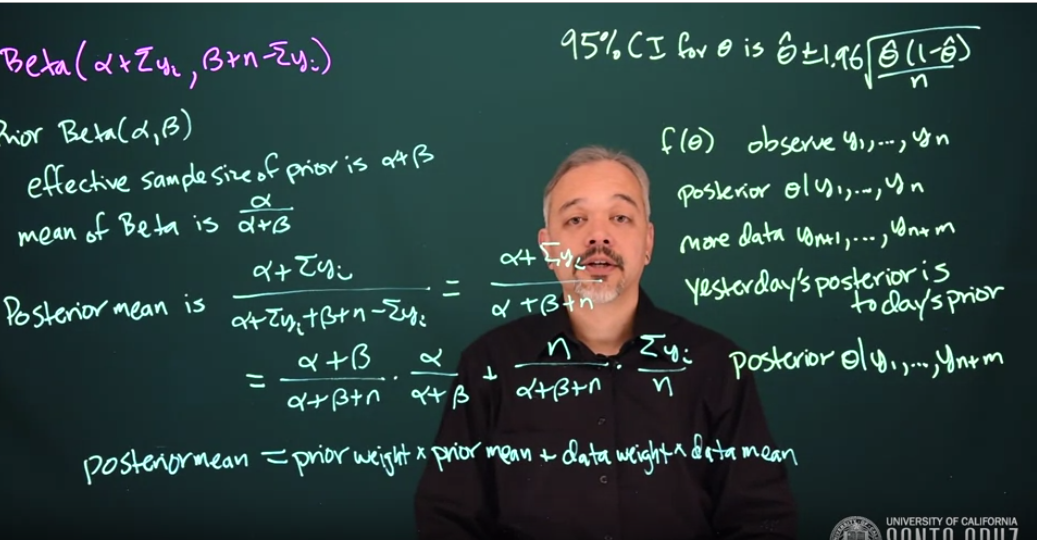 Beta(α+Σyᵢ, β+n-Σyᵢ)
Prior Beta(α,β)
effective sample size of prior is α+β
mean of Beta is α/(α+β)
Posterior mean is (α+Σyᵢ)/(α+Σyᵢ+β+n-Σyᵢ) = (α+Σyᵢ)/(α+β+n)
= (α+β)/(α+β+n) · α/(α+β) + n/(α+β+n) · Σyᵢ/n
posterior mean = prior weight × prior mean + data weight × data mean
95% CI for θ is θ̂ ± 1.96√(θ̂(1-θ̂)/n)
f(θ) observe y₁,...,yₙ
posterior θ|y₁,...,yₙ
more data yₙ₊₁,...,yₙ₊ₘ
yesterday's posterior is
today's prior
posterior θ|y₁,...,yₙ₊ₘ
UNIVERSITY OF CALIFORNIA